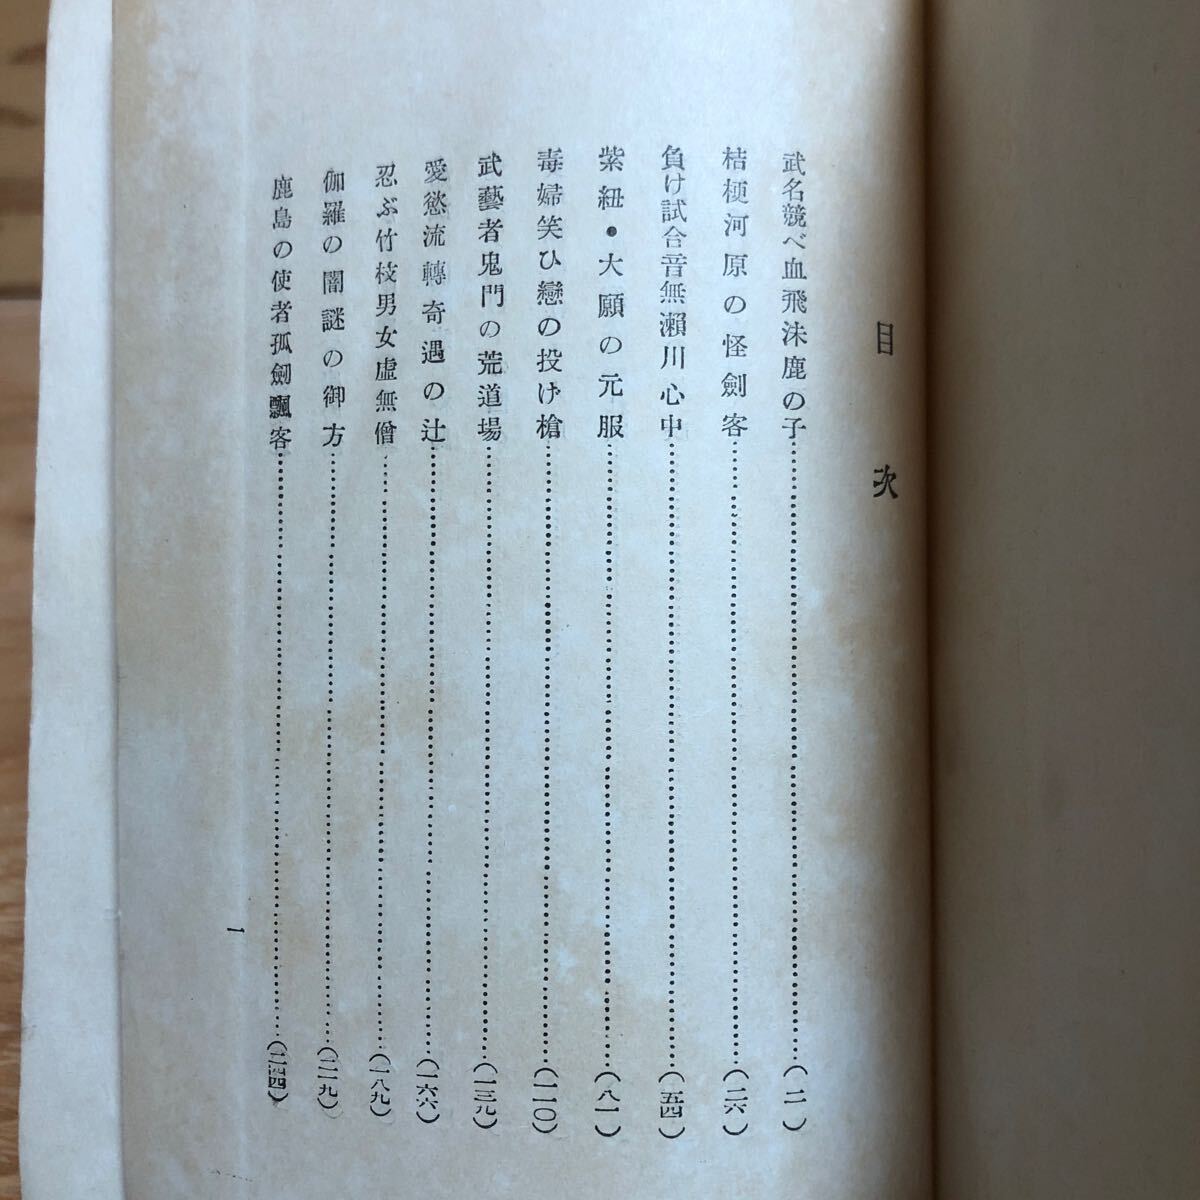 目次
武名競べ血飛沫鹿の子……(二)
桔梗河原の怪劍客……(二六)
負け試合音無瀬川心中……(五四)
紫紐・大願の元服……(八一)
毒婦笑ひ戀の投げ槍……(一一〇)
武藝者鬼門の荒道場……(一三九)
愛慾流轉奇遇の辻……(一六六)
忍ぶ竹枝男女虛無僧……(一八九)
伽羅の闇謎の御方……(二一九)
鹿島の使者孤劍飄客……(二四四)
1